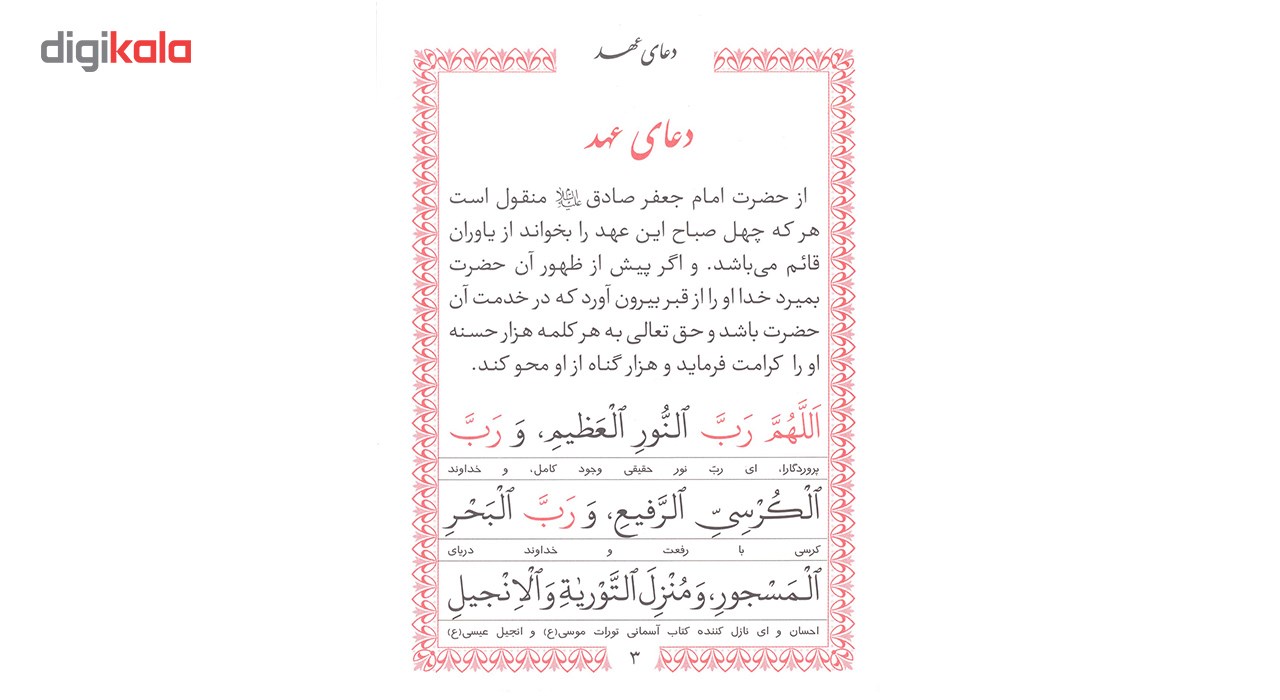 digikala
دعای عهد
دعای عهد
از حضرت امام جعفر صادق علیه‌السلام منقول است
هر که چهل صباح این عهد را بخواند از یاوران
قائم می‌باشد. و اگر پیش از ظهور آن حضرت
بمیرد خدا او را از قبر بیرون آورد که در خدمت آن
حضرت باشد و حق تعالی به هر کلمه هزار حسنه
او را کرامت فرماید و هزار گناه از او محو کند.
اَللَّهُمَّ رَبَّ ٱلنُّورِ ٱلْعَظیمِ، وَ رَبَّ
پروردگارا، ای ربّ نور حقیقی وجود کامل، و خداوند
ٱلْکُرْسِیِّ ٱلرَّفیعِ، وَ رَبَّ ٱلْبَحْرِ
کرسی با رفعت و خداوند دریای
ٱلْمَسْجورِ، وَ مُنْزِلَ ٱلتَّوْریٰةِ وَٱلْاِنْجیلِ
احسان و ای نازل کننده کتاب آسمانی تورات موسی(ع) و انجیل عیسی(ع)
۳